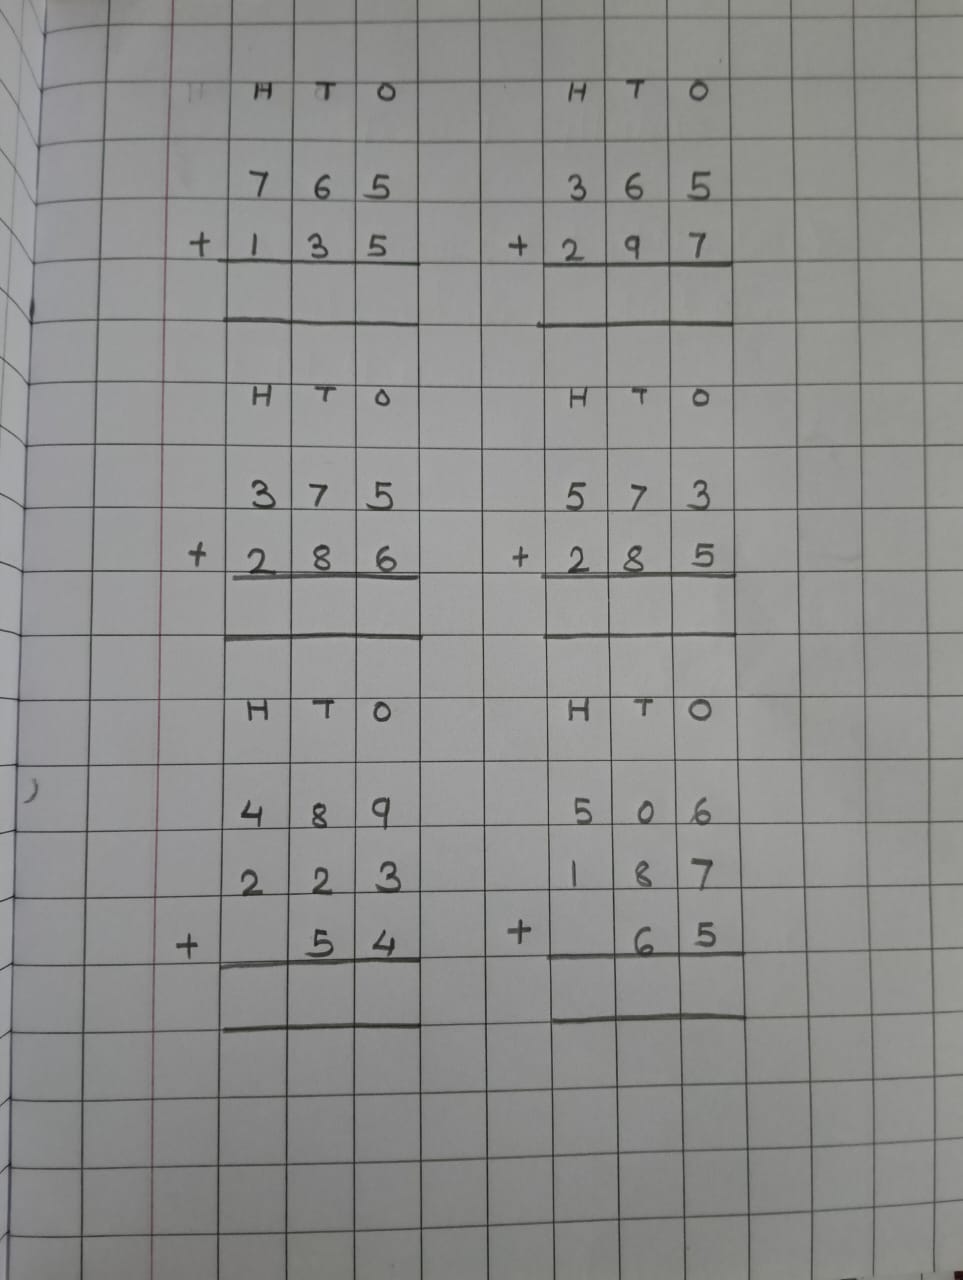 H T O H T O
7 6 5 3 6 5
+ 1 3 5 + 2 9 7
H T O H T O
3 7 5 5 7 3
+ 2 8 6 + 2 8 5
H T O H T O
4 8 9 5 0 6
2 2 3 1 8 7
+ 5 4 + 6 5